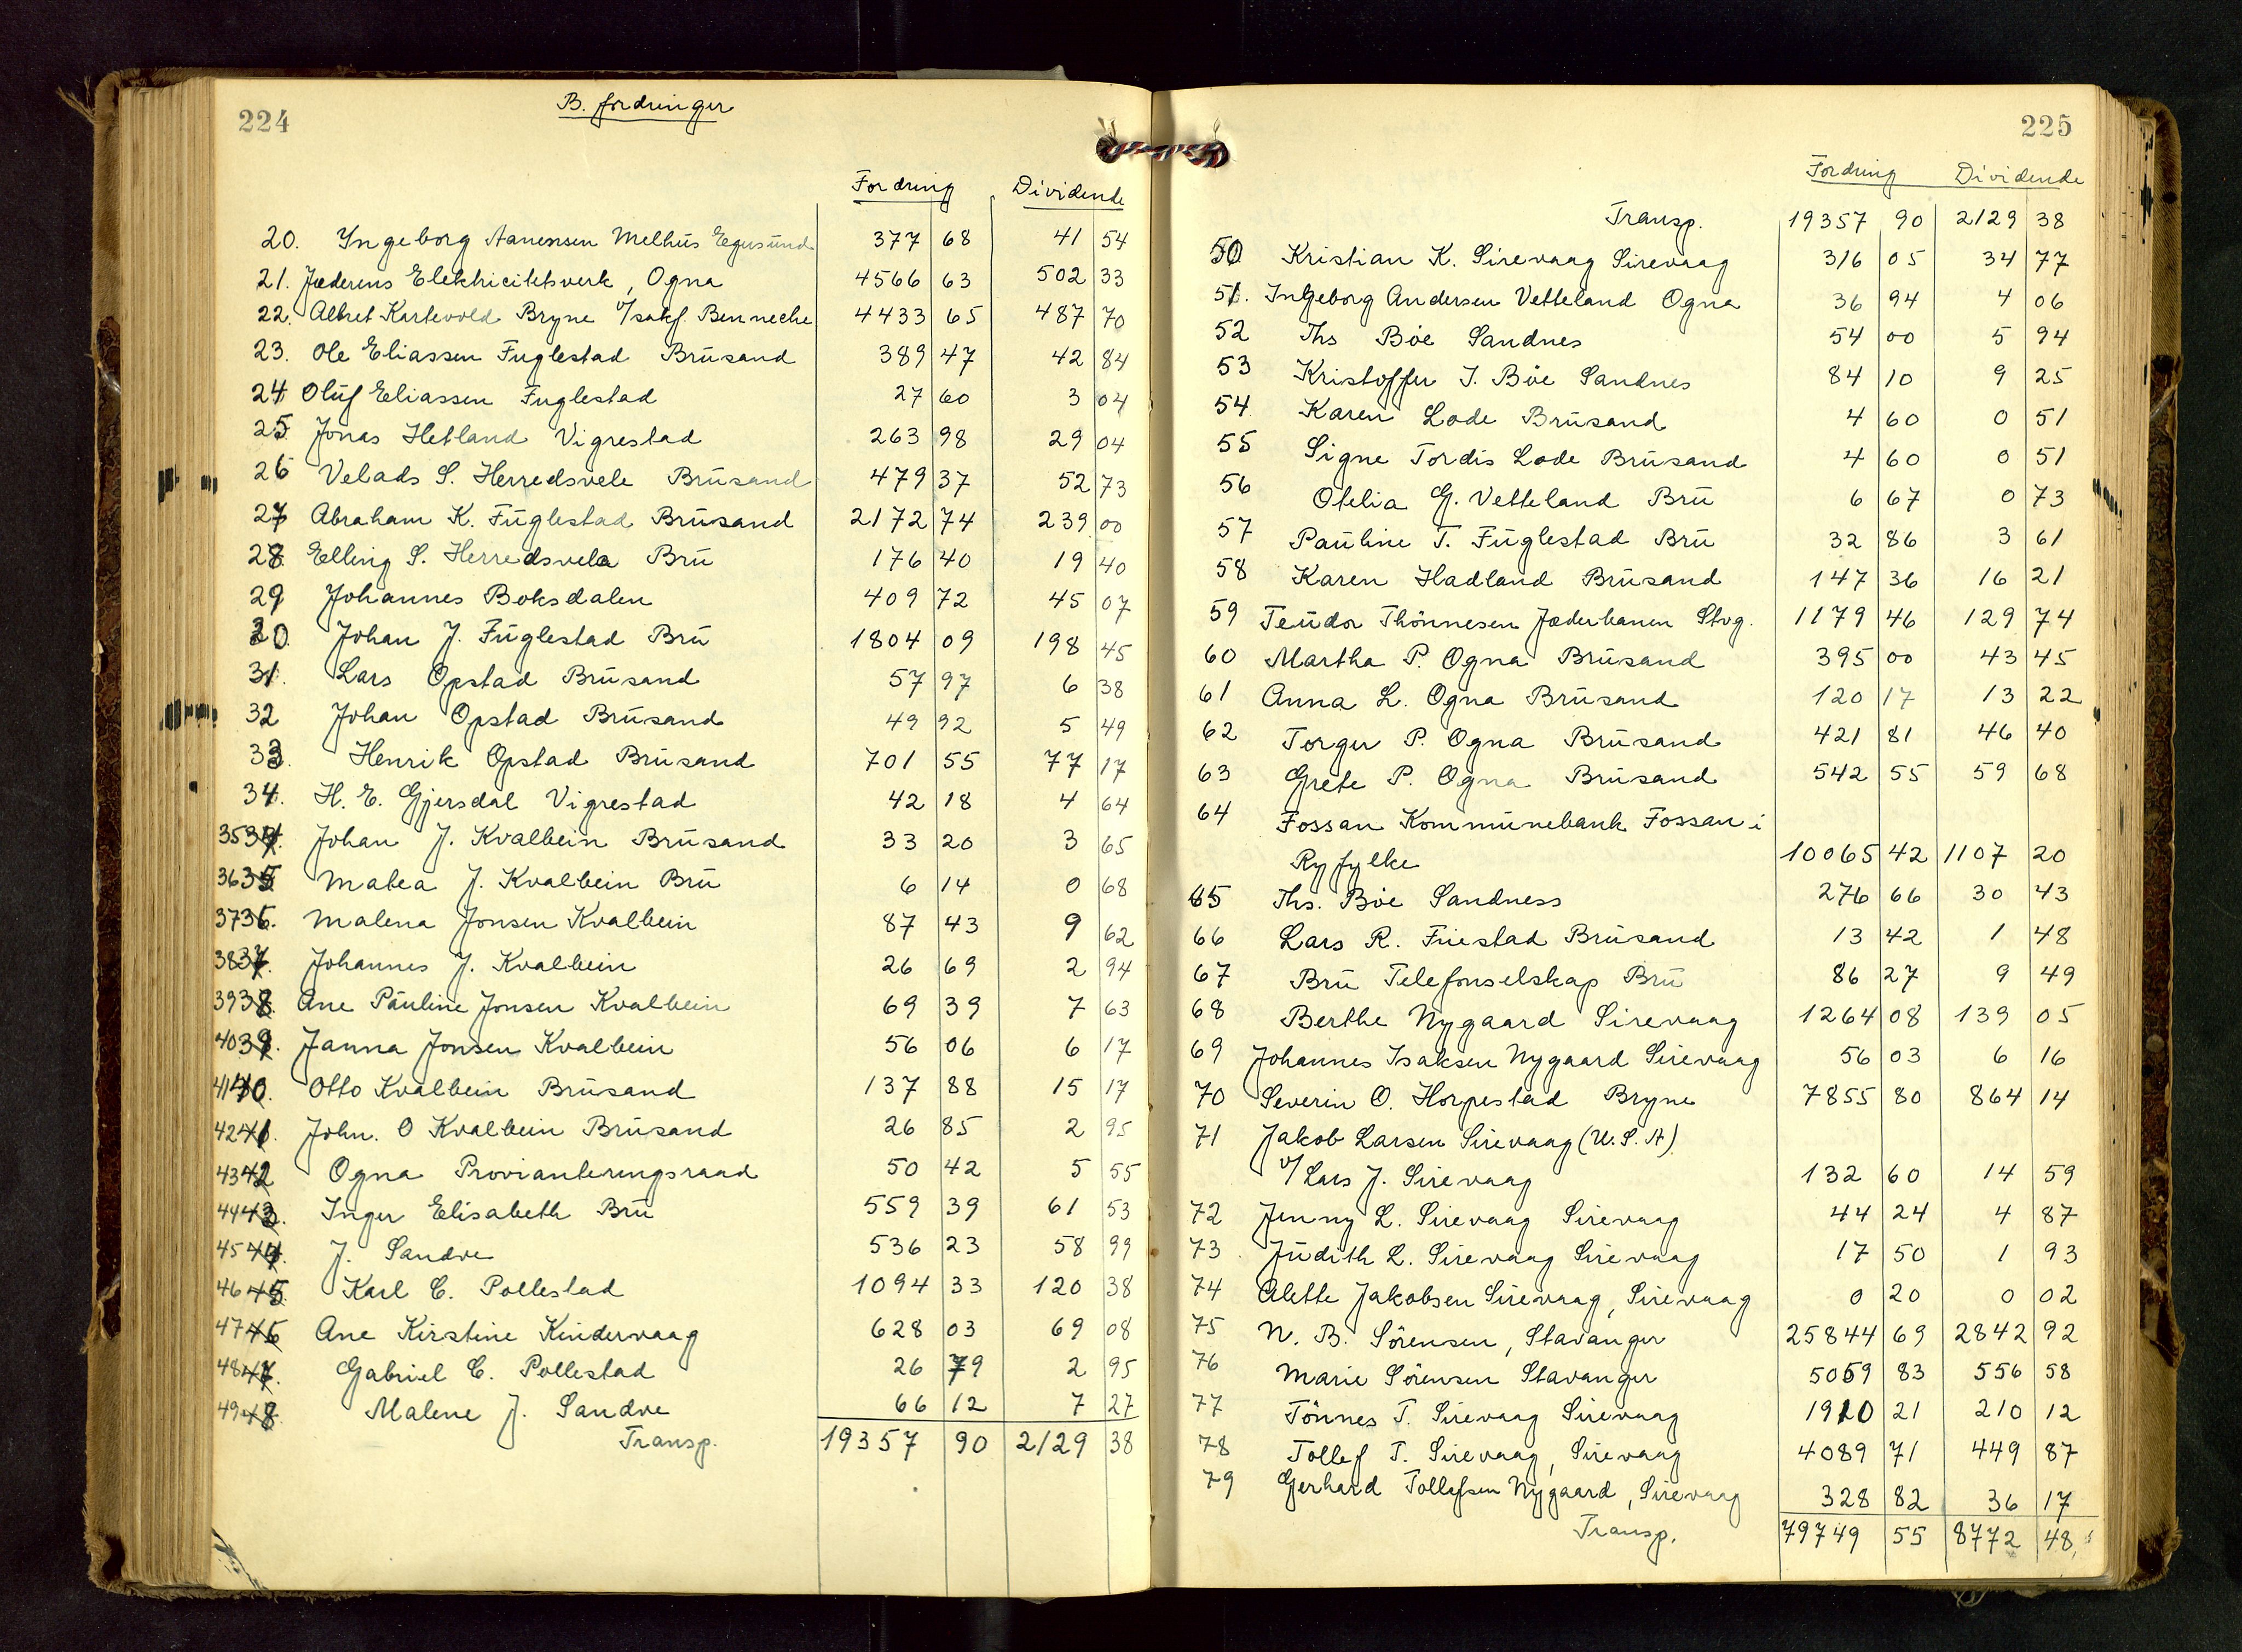 224
B. fordringer
Fordring Dividende
20. Ingeborg Aanensen Melhüs Egersund 377 68 41 54
21. Jæderens Elektricitetsverk, Ogna 4566 63 502 33
22. Albret Kartevold Bryne v/sakf. Benneche 4433 65 487 70
23. Ole Eliassen Fuglestad Brüsand 389 47 42 84
24 Olüf Eliassen Fuglestad 27 60 3 04
25 Jonas Hetland Vigrestad 263 98 29 04
26 Velads S. Herredsvele Brüsand 479 37 52 73
27 Abraham K. Füglestad Brüsand 2172 74 239 00
28. Elling S. Herredsvela Brü 176 40 19 40
29 Johannes Boksdalen 409 72 45 07
30. Johan J. Füglestad Brü 1804 09 198 45
31. Lars Opstad Brüsand 57 97 6 38
32 Johan Opstad Brüsand 49 92 5 49
33. Henrik Opstad Brüsand 701 55 77 17
34. H. E. Gjersdal Vigrestad 42 18 4 64
35 34. Johan J. Kvalbein Brüsand 33 20 3 65
36 35 Matea J. Kvalbein Brü 6 14 0 68
37 36. Malena Jonsen Kvalbein 87 43 9 62
38 37. Johannes J. Kvalbein 26 69 2 94
39 38. Ane Päuline Jonsen Kvalbein 69 39 7 63
40 39. Janna Jonsen Kvalbein 56 06 6 17
41 40. Otto Kvalbein Brüsand 137 88 15 17
42 41. John. O Kvalbein Brüsand 26 85 2 95
43 42 Ogna Provianteringsraad 50 42 5 55
44 43. Inger Elisabeth Brü 559 39 61 53
45 44. J. Sandve 536 23 58 99
46 45. Karl C. Pollestad 1094 33 120 38
47 46 Ane Kirstine Kindervaag 628 03 69 08
48 47. Gabriel C. Pollestad 26 79 2 95
49 48. Malene J. Sandve 66 12 7 27
Transp. 19357 90 2129 38
225
Fordring Dividende
Transp. 19357 90 2129 38
50 Kristian K. Sirevaag Sirevaag 316 05 34 77
51. Ingeborg Andersen Vetteland Ogna 36 94 4 06
52 Ths Böe Sandnes 54 00 5 94
53 Kristoffer J. Böe Sandnes 84 10 9 25
54 Karen Lode Brüsand 4 60 0 51
55 Signe Tordis Lode Brüsand 4 60 0 51
56 Otelia G. Vetteland Brü 6 67 0 73
57 Paüline T. Füglestad Brü 32 86 3 61
58 Karen Hadland Brüsand 147 36 16 21
59 Teüdor Thönnesen Jæderbanen Stvg. 1179 46 129 74
60 Martha P. Ogna Brüsand 395 00 43 45
61 Anna L. Ogna Brüsand 120 17 13 22
62 Torger P. Ogna Brüsand 421 81 46 40
63 Grete P. Ogna Brüsand 542 55 59 68
64 Fossan Kommünebank Fossan i
Ryfylke 10065 42 1107 20
65 Ths. Böe Sandness 276 66 30 43
66 Lars R. Friestad Brüsand 13 42 1 48
67 Brü Telefonselskap Brü 86 27 9 49
68 Berthe Nygaard Sirevaag 1264 08 139 05
69 Johannes Isaksen Nygaard Sirevaag 56 03 6 16
70 Severin O. Horpestad Bryne 7855 80 864 14
71 Jakob Larsen Sirevaag (U.S.A)
v/ Lars J. Sirevaag 132 60 14 59
72 Jenny L. Sirevaag Sirevaag 44 24 4 87
73. Jüdith L. Sirevaag Sirevaag 17 50 1 93
74 Alette Jakobsen Sirevaag, Sirevaag 0 20 0 02
75 N. B. Sörensen, Stavanger 25844 69 2842 92
76 Marie Sörensen Stavanger 5059 83 556 58
77 Tönnes T. Sirevaag Sirevaag 1910 21 210 12
78 Tollef T. Sirevaag, Sirevaag 4089 71 449 87
79 Gerhard Tollefsen Nygaard, Sirevaag 328 82 36 17
Transp. 79749 55 8772 48